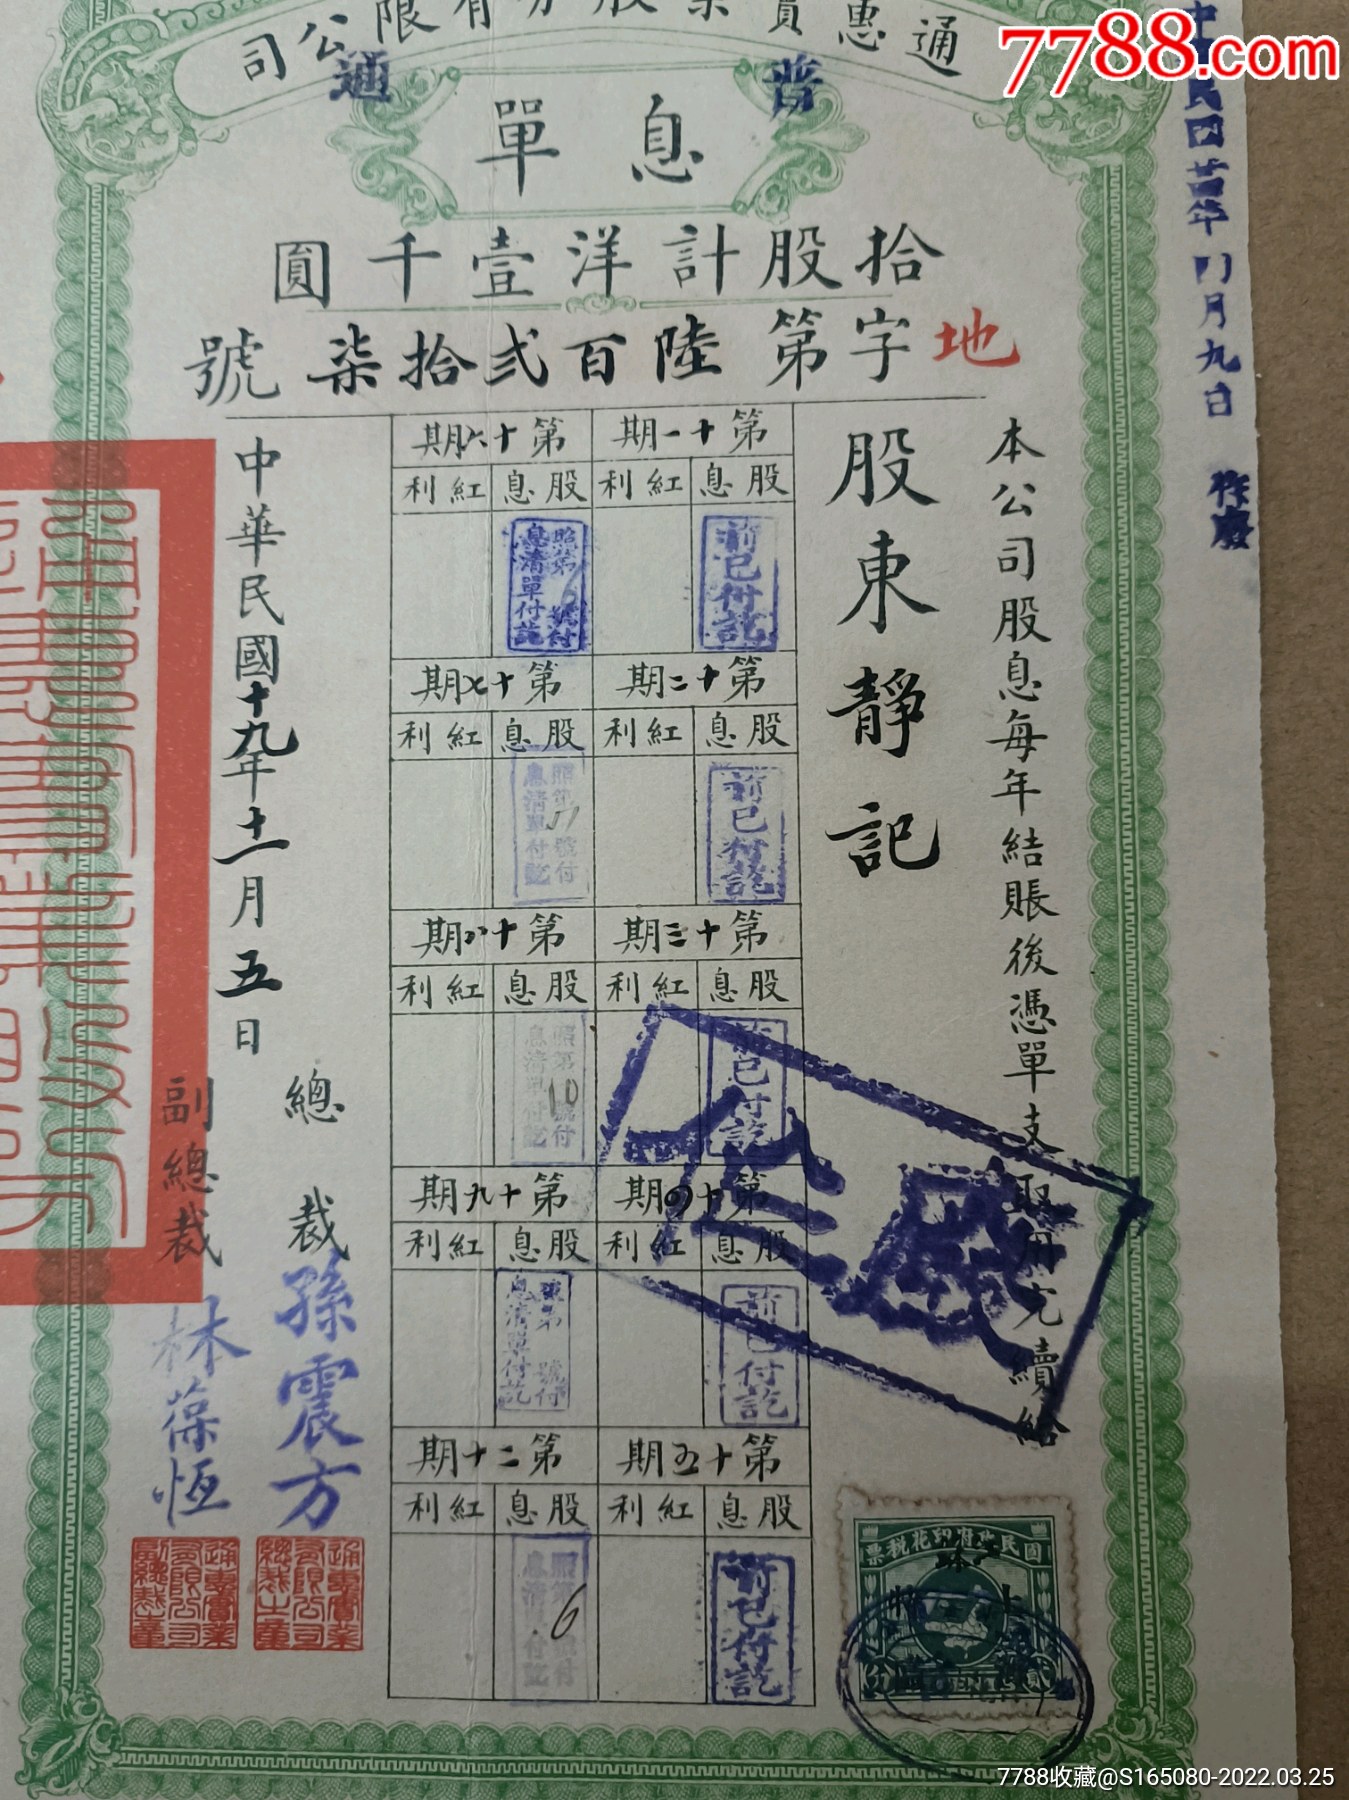 7788.com
通惠實業股份有限公司
普通
息單
拾股計洋壹千圓
地字第陸百弍拾柒號
本公司股息每年結賬後憑單支取用完續給
股東靜記
第十一期 第十六期
股息 紅利 股息 紅利
前已付訖
照第6號付息清單付訖
第十二期 第十七期
股息 紅利 股息 紅利
前已付訖
照第 號付息清單付訖
第十三期 第十八期
股息 紅利 股息 紅利
前已付訖
照第10號付息清單付訖
第十四期 第十九期
股息 紅利 股息 紅利
前已付訖
照第 號付息清單付訖
第十五期 第二十期
股息 紅利 股息 紅利
前已付訖
照第6號付息清單付訖
中華民國十九年十一月五日
總裁 孫震方
副總裁 林葆恆
通惠實業有限公司總裁之章
通惠實業有限公司副總裁章
國民政府印花稅票
月九日
作廢
7788收藏@S165080-2022.03.25